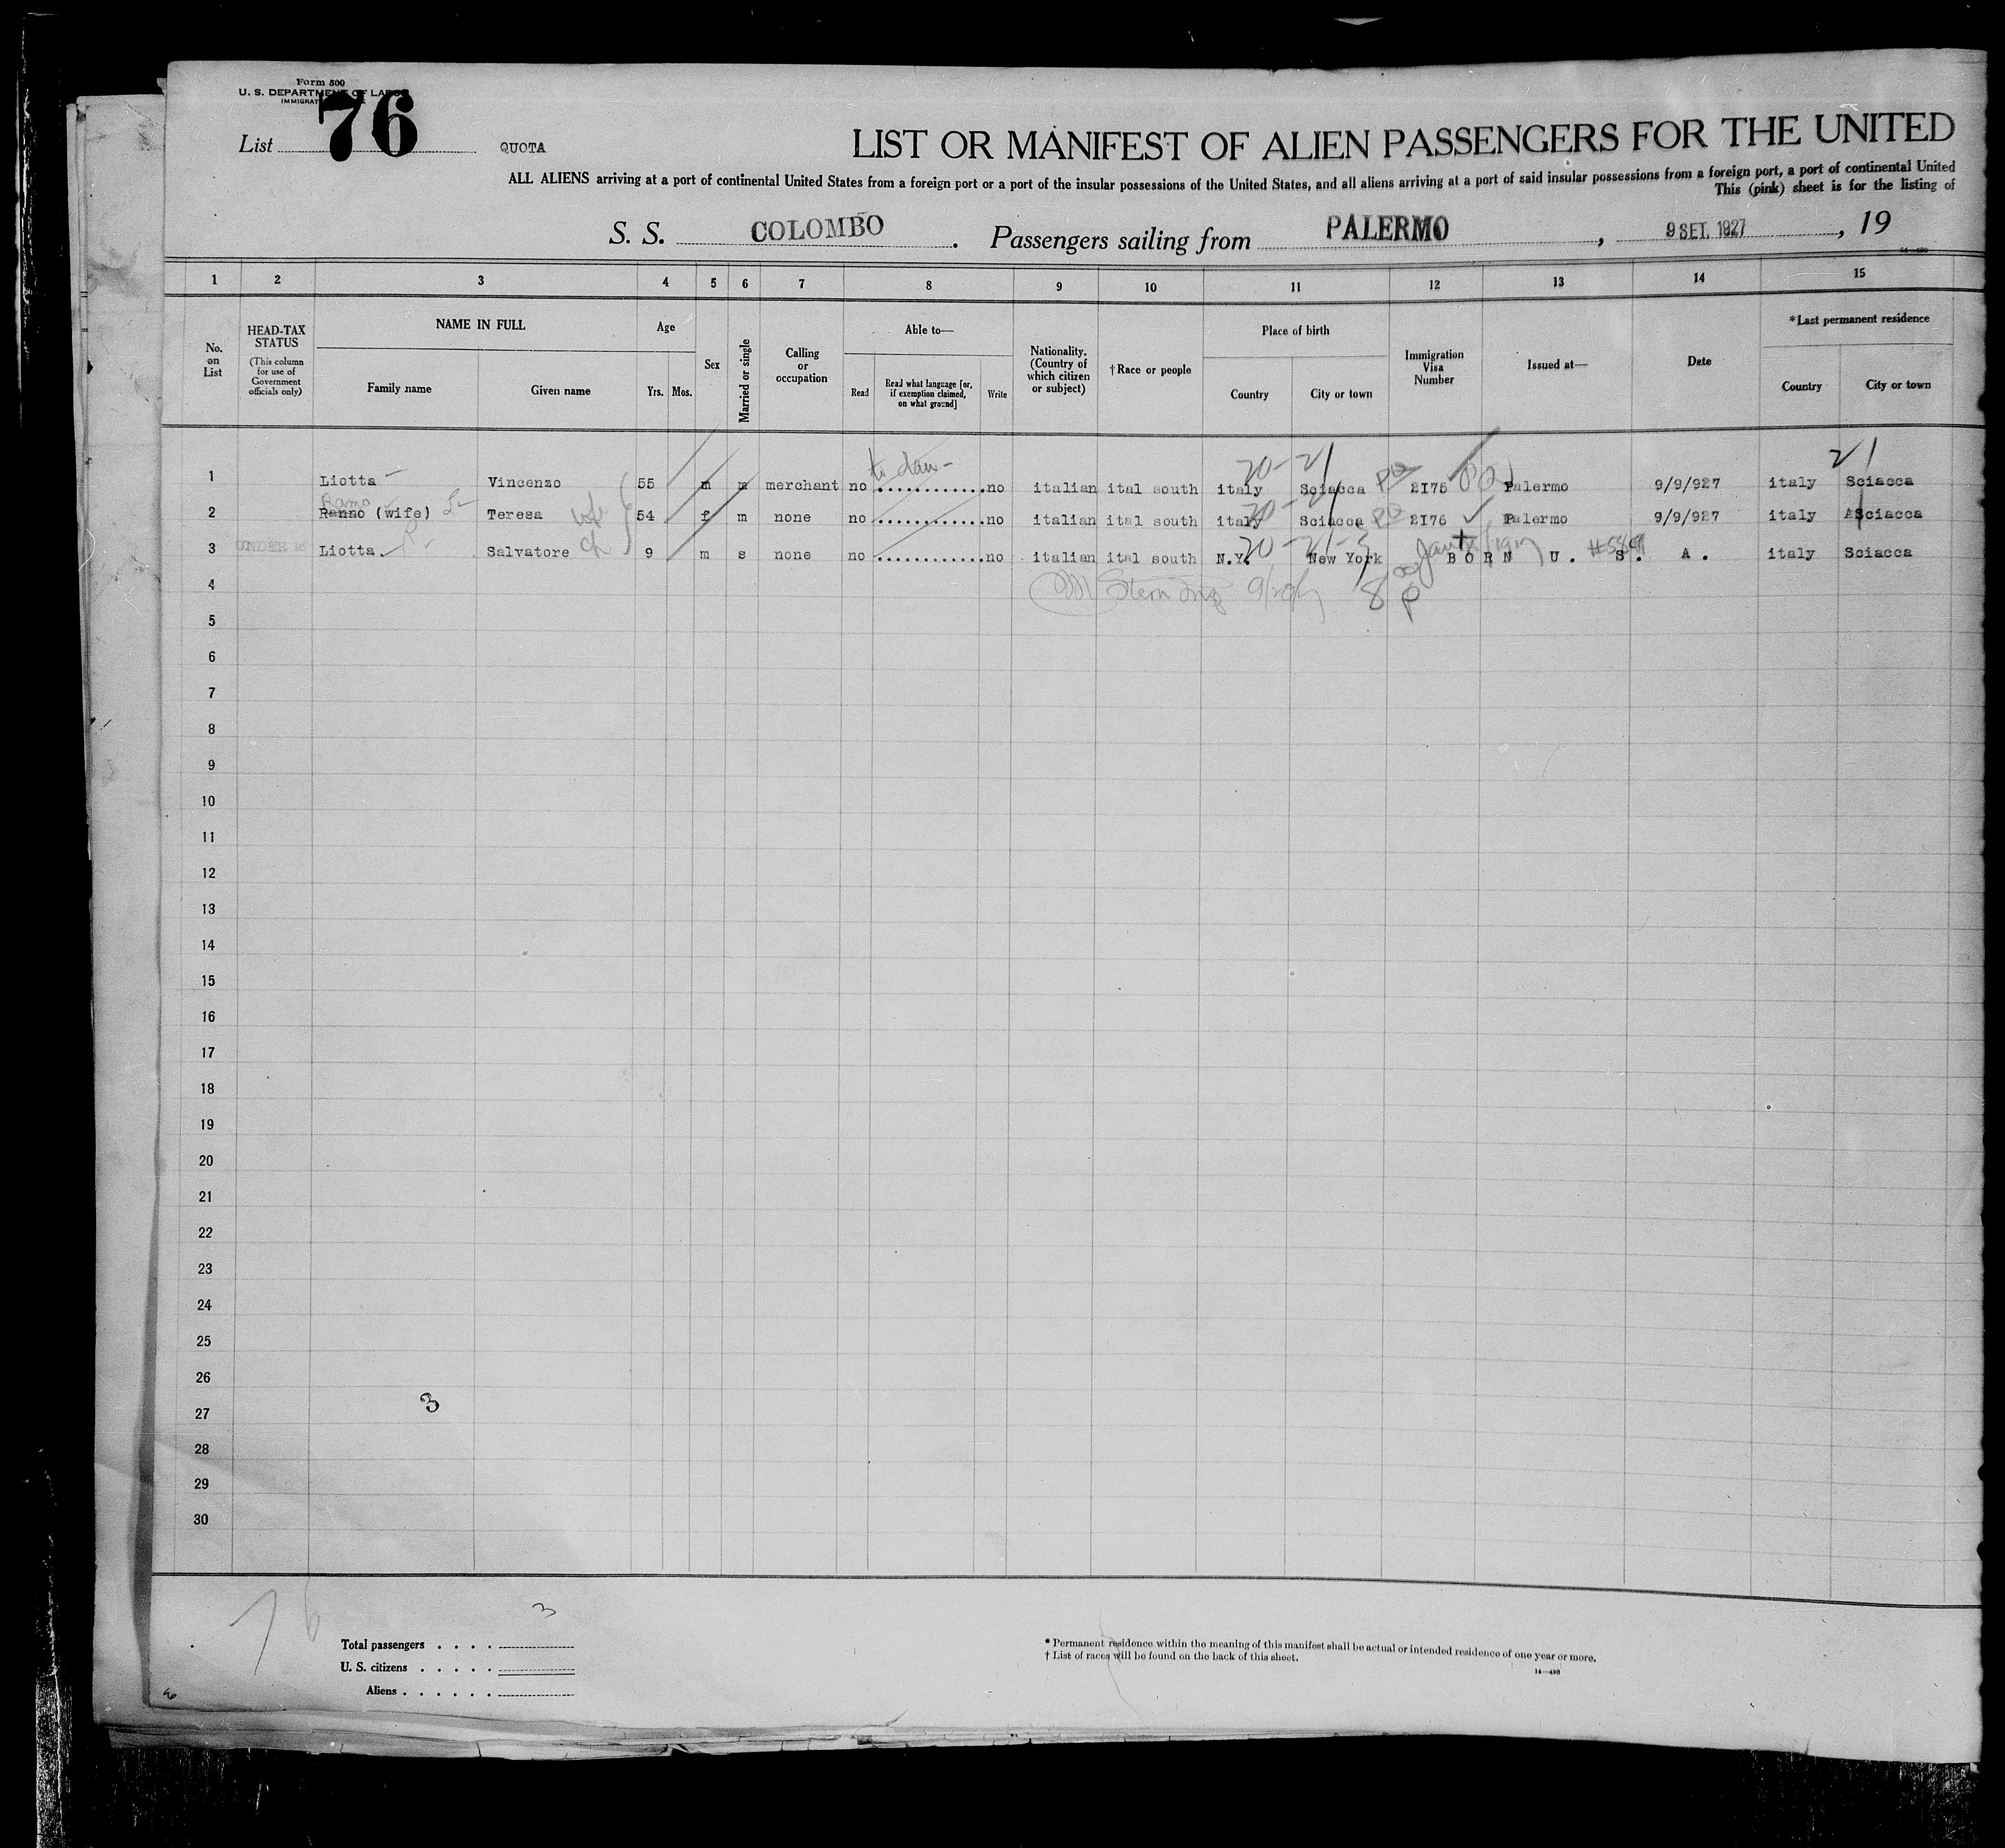 Form 500
U. S. DEPARTMENT OF LABOR
IMMIGRAT
List 76
QUOTA
LIST OR MANIFEST OF ALIEN PASSENGERS FOR THE UNITED
ALL ALIENS arriving at a port of continental United States from a foreign port or a port of the insular possessions of the United States, and all aliens arriving at a port of said insular possessions from a foreign port, a port of continental United
This (pink) sheet is for the listing of
S. S. COLOMBO. Passengers sailing from PALERMO, 9 SET. 1927, 19
1 2 3 4 5 6 7 8 9 10 11 12 13 14 15
No. on List
HEAD-TAX STATUS
(This column for use of Government officials only)
NAME IN FULL
Family name
Given name
Age
Yrs. Mos.
Sex
Married or single
Calling or occupation
Able to—
Read
Read what language [or, if exemption claimed, on what ground]
Write
Nationality. (Country of which citizen or subject)
†Race or people
Place of birth
Country
City or town
Immigration Visa Number
Issued at—
Date
*Last permanent residence
Country
City or town
20-21
21
1 Liotta Vincenzo 55 m m merchant no ............ no italian ital south italy Sciacca 2I75 Palermo 9/9/927 italy Sciacca
2 Ranno (wife) Teresa wife 54 f m none no ............ no italian ital south italy Sciacca 2I76 Palermo 9/9/927 italy Sciacca
3 UNDER 16 Liotta Salvatore ch 9 m s none no ............ no italian ital south N.Y. New York BORN U. S. A. italy Sciacca
4
5
6
7
8
9
10
11
12
13
14
15
16
17
18
19
20
21
22
23
24
25
26
3
27
28
29
30
76
3
Total passengers . . . .
U. S. citizens . . . . .
Aliens . . . . . .
* Permanent residence within the meaning of this manifest shall be actual or intended residence of one year or more.
† List of races will be found on the back of this sheet.
14—430